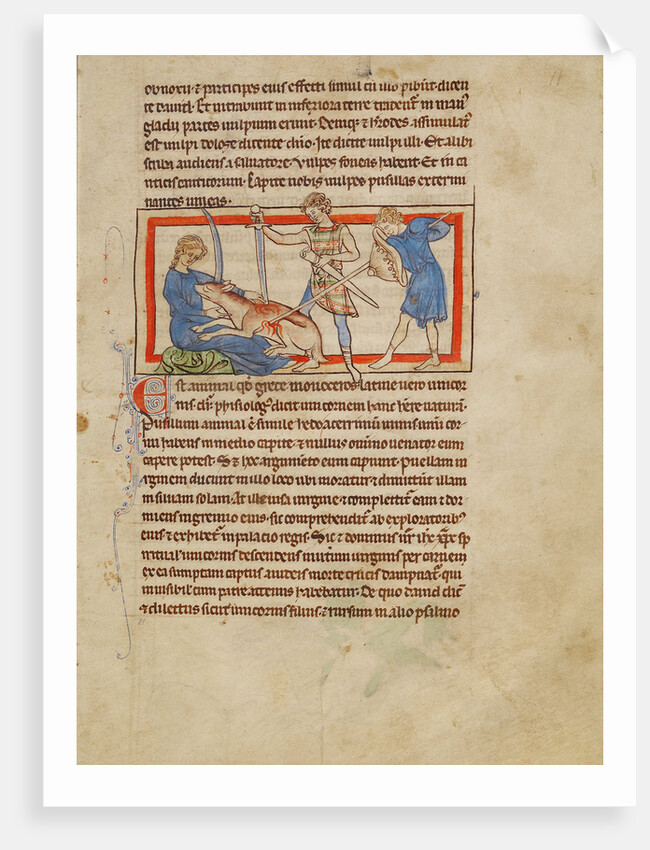 obnoxii · ⁊ participes eius effecti simul cū illo pibūt · dicen
te dauid · Et intrabunt in inferiora terre tradent᷑ in man᷑
gladii partes uulpium erunt · Deniq; ⁊ herodes assimulat᷑
est uulpi dolose dicente domino · Ite dicite uulpi illi · Et alibi
scriba audiens a saluatore · Vulpes foueas habent · Et in ca
nticis canticorum · Capite nobis uulpes pusillas extermi
nantes uineas ·
Est animal qd grece monoceros latine uero unicor
nis · phisiolog᷒ dicit unicornem hanc habere naturā ·
Pusillum animal ē simile hedo acerrimū nimis unū cor
nu habens in medio capite ⁊ nullus omnino uenator eum
capere potest · S; hoc argumēto eum capiunt · Puellam uir
ginem ducunt in illo loco ubi moratur ⁊ dimittūt illam
in siluam solam · At ille uisa uirgine ⁊ complectit᷑ eam ⁊ dor
miens in gremio eius · sic comprehendit᷑ ab exploratorib᷒
eius ⁊ exhibet᷑ in palacio regis · Sic ⁊ dominus nr̄ ihc xp̄c sp
iritual᷒ unicornis descendens in uterum uirginis per carnem
ex ea sumptam captus a iudeis morte crucis dampnat᷒ · qui
inuisibil᷒ cum patre actenus habebatur · De quo dauid dicit
⁊ dilectus sicut unicornis filius · ⁊ rursum in alio psalmo